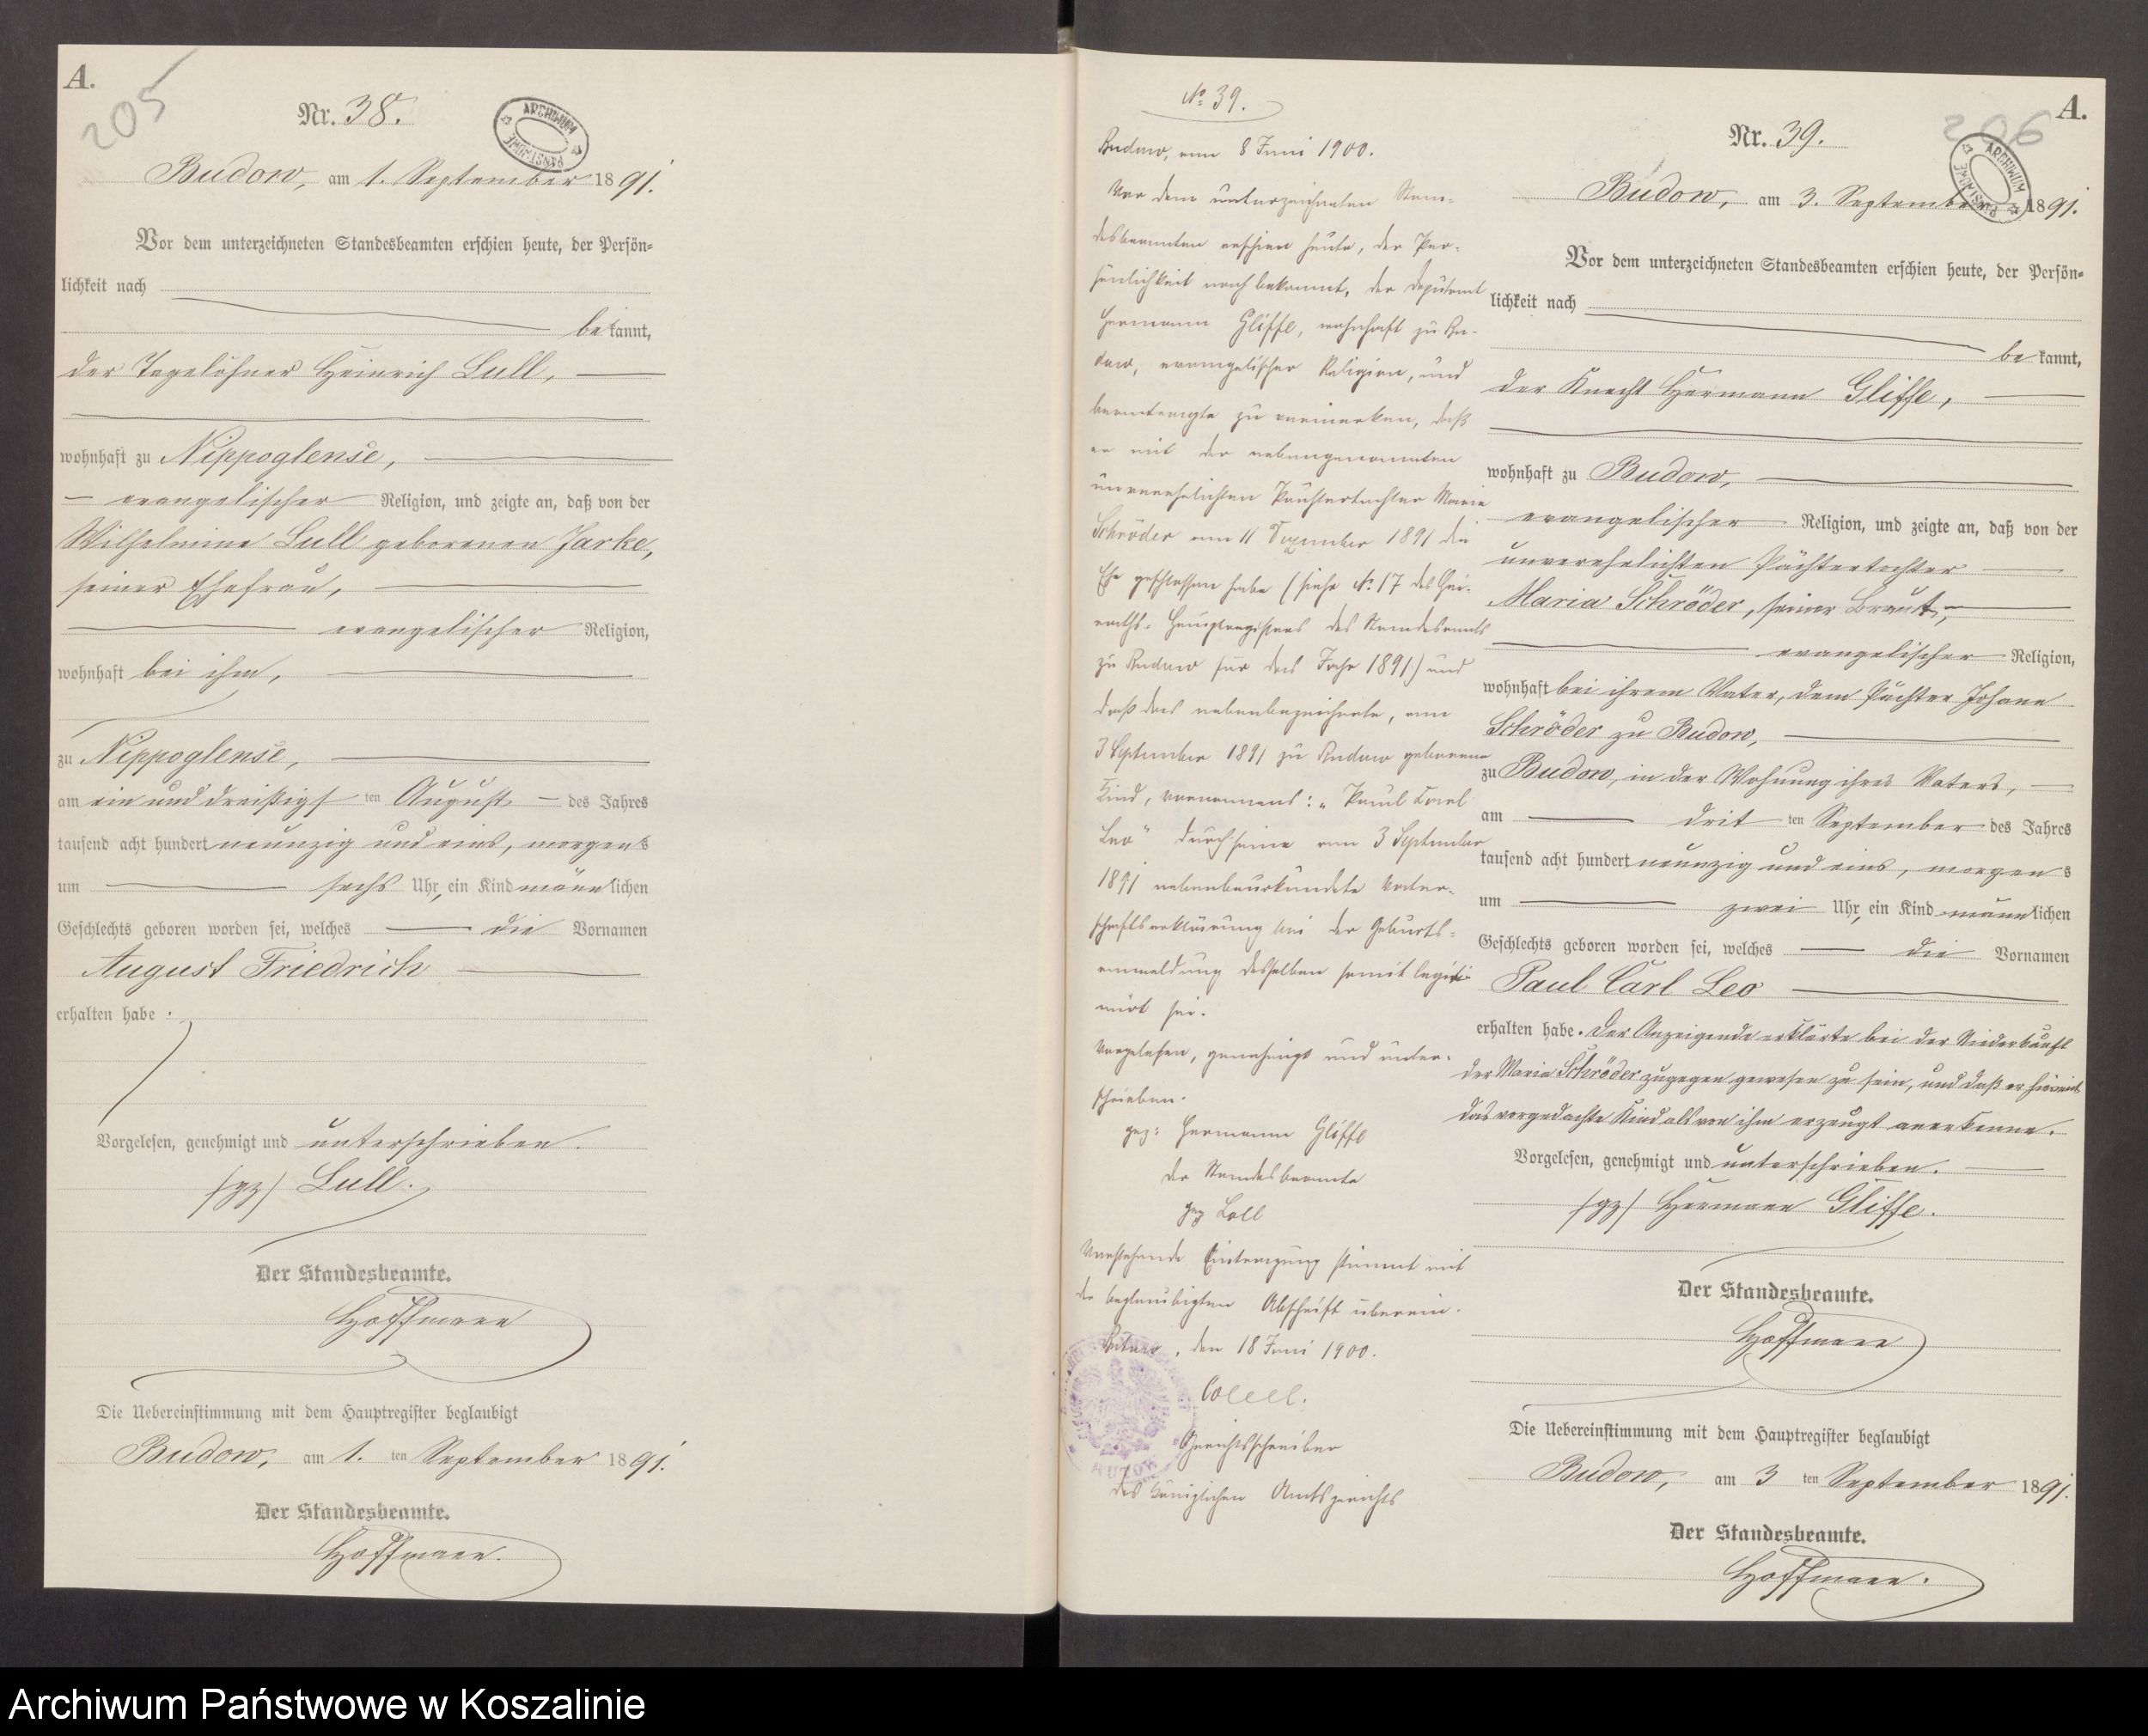 A.
205
Nr. 38.
ARCHIWUM PAŃSTWOWE
Budow, am 1. September 1891.
Vor dem unterzeichneten Standesbeamten erschien heute, der Persön=
lichkeit nach
bekannt,
der Tagelöhner Heinrich Lull,
wohnhaft zu Nippoglense,
evangelischer Religion, und zeigte an, daß von der
Wilhelmine Lull geborenen Jarke,
seiner Ehefrau,
evangelischer Religion,
wohnhaft bei ihm,
zu Nippoglense,
am ein und dreißigsten August des Jahres
tausend acht hundert neunzig und eins, morgens
um sechs Uhr, ein Kind männlichen
Geschlechts geboren worden sei, welches die Vornamen
August Friedrich
erhalten habe.
Vorgelesen, genehmigt und unterschrieben.
(gz) Lull.
Der Standesbeamte.
Hoffmann
Die Uebereinstimmung mit dem Hauptregister beglaubigt
Budow, am 1. ten September 1891.
Der Standesbeamte.
Hoffmann.
No 39.
Budow, am 8 Juni 1900.
Vor dem unterzeichneten Stan=
desbeamten erschien heute, der Per=
sönlichkeit nach bekannt, der Deputant
Hermann Gliffe, wohnhaft zu Bu=
dow, evangelischer Religion, und
beantragte zu vermerken, daß
er mit der nebengenannten
unverehelichten Pächtertochter Maria
Schröder am 11 Dezember 1891 die
Ehe geschlossen habe (siehe No 17 des Hei=
raths=Hauptregisters des Standesamts
zu Budow für das Jahr 1891) und
daß das nebenbezeichnete, am
3 September 1891 zu Budow geborene
Kind, vornamens: „Paul Carl
Leo" durch seine am 3 September
1891 nebenbeurkundete Vater=
schaftserklärung bei der Geburts=
anmeldung desselben somit legiti=
mirt sei.
Vorgelesen, genehmigt und unter=
schrieben.
gez: Hermann Gliffe
Der Standesbeamte
gez Loll
Vorstehende Eintragung stimmt mit
der beglaubigten Abschrift überein.
Bütow, den 18 Juni 1900.
Gerichtsschreiber
des Königlichen Amtsgerichts
A.
206
Nr. 39.
ARCHIWUM PAŃSTWOWE
Budow, am 3. September 1891.
Vor dem unterzeichneten Standesbeamten erschien heute, der Persön=
lichkeit nach
bekannt,
der Knecht Hermann Gliffe,
wohnhaft zu Budow,
evangelischer Religion, und zeigte an, daß von der
unverehelichten Pächtertochter
Maria Schröder, seiner Braut,
evangelischer Religion,
wohnhaft bei ihrem Vater, dem Pächter Johann
Schröder zu Budow,
zu Budow, in der Wohnung ihres Vaters,
am dritten September des Jahres
tausend acht hundert neunzig und eins, morgens
um zwei Uhr, ein Kind männlichen
Geschlechts geboren worden sei, welches die Vornamen
Paul Carl Leo
erhalten habe. Der Anzeigende erklärte bei der Niederkunft
der Maria Schröder zugegen gewesen zu sein, und daß er hiermit
das vorgedachte Kind als von ihm erzeugt anerkenne.
Vorgelesen, genehmigt und unterschrieben.
(gz) Hermann Gliffe.
Der Standesbeamte.
Hoffmann
Die Uebereinstimmung mit dem Hauptregister beglaubigt
Budow, am 3 ten September 1891.
Der Standesbeamte.
Hoffmann.
Archiwum Państwowe w Koszalinie